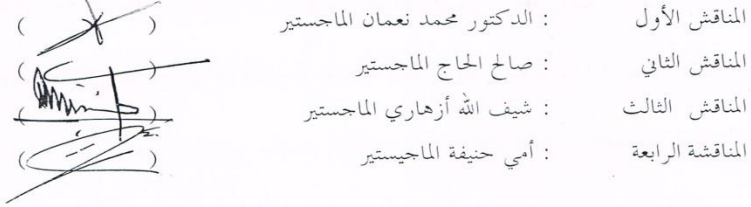 المناقش الأول : الدكتور محمد نعمان الماجستير ( )
المناقش الثاني : صالح الحاج الماجستير ( )
المناقش الثالث : شيف الله أزهاري الماجستير ( )
المناقشة الرابعة : أمي حنيفة الماجيستير ( )